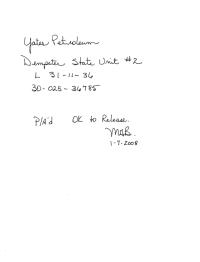 Yates Petroleum
Dempster State Unit #2
L 31-11-36
30-025-36785
P/A'd OK to Release.
MGB.
1-7-2008